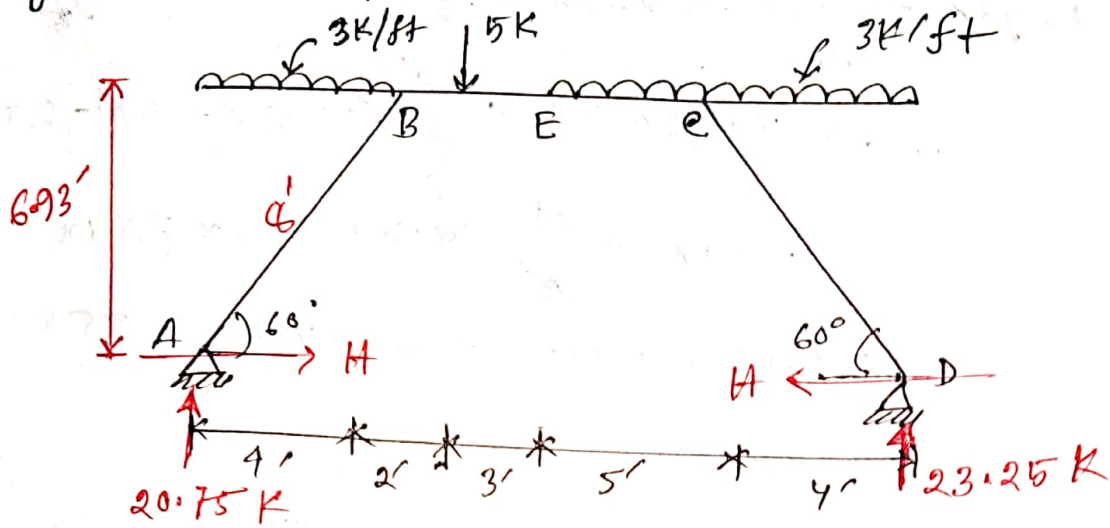 3K/ft 5K 3K/ft
B E C
6.93'
8'
A 60° H
60° H D
4' 2' 3' 5' 4'
20.75 K 23.25 K